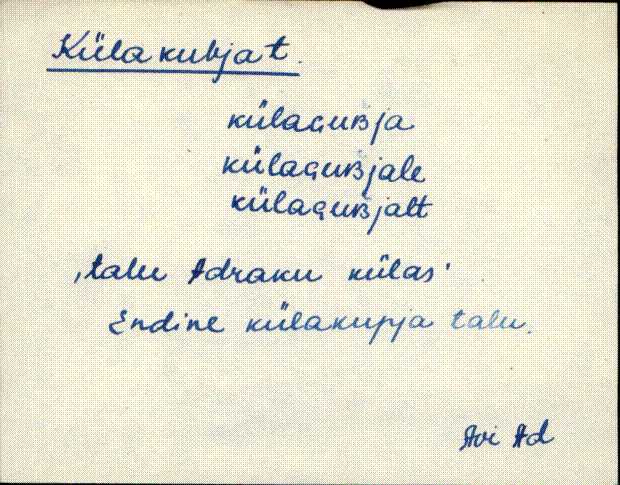 Külakubjat.
külaGuʙja
külaGuʙjale
külaGuʙjalt
‚talu Adraku külas‘
Endine külakupja talu.
Avi Ad